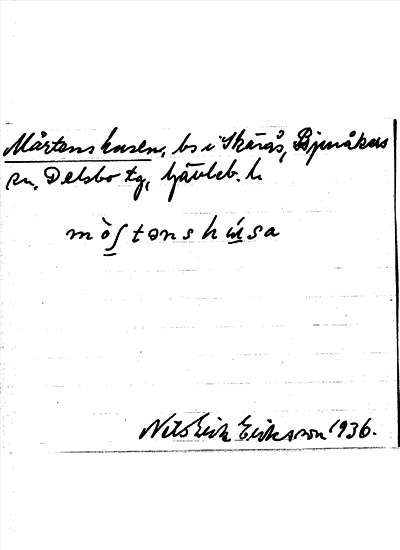 Mårtenshusen, bs i Skärås, Bjuråkers
sn, Delsbo tg, Gävleb. l.
mòʃtənshu̱sa
Nils Erik Eriksson 1936.